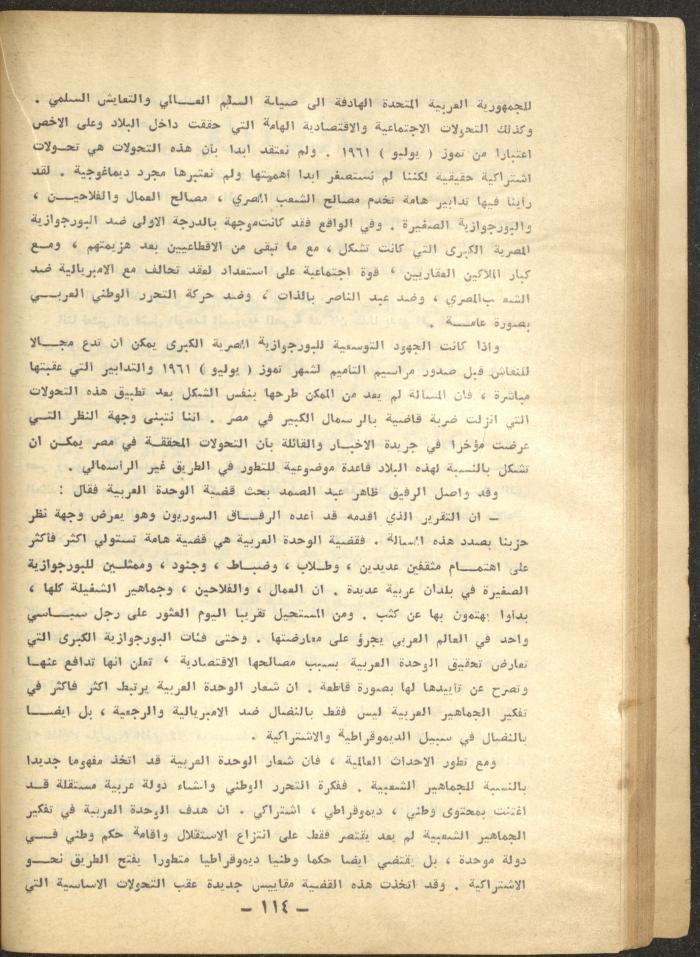 للجمهورية العربية المتحدة الهادفة الى صيانة السلم العـــالي والتعايش السلمي .
وكذلك التحولات الاجتماعية والاقتصادية الهامة التي حققت داخل البلاد وعلى الاخص
اعتبارا من تموز ( يوليو ) ١٩٦١ . ولم نعتقد ابدا بأن هذه التحولات هي تحـولات
اشتراكية حقيقية لكننا لم نستصغر ابدا أهميتها ولم نعتبرها مجرد ديماغوجية . لقد
رأينا فيها تدابير هامة تخدم مصالح الشعب المصري ، مصالح العمال والفلاحيـــن ،
والبورجوازية الصغيرة . وفي الواقع فقد كانت موجهة بالدرجة الاولى ضد البورجوازية
المصرية الكبرى التي كانت تشكل ، مع ما تبقى من الاقطاعيين بعد هزيمتهم ، ومـع
كبار الملاكين العقاريين ، قوة اجتماعية على استعداد لعقد تحالف مع الامبريالية ضد
الشعب المصري ، وضد عبد الناصر بالذات ، وضد حركة التحرر الوطني العربـــي
بصورة عامــة .
واذا كانت الجهود التوسعية للبورجوازية المصرية الكبرى يمكن ان تدع مجــالا
للنقاش قبل صدور مراسيم التاميم لشهر تموز ( يوليو ) ١٩٦١ والتدابير التي عقبتها
مباشرة ، فان المسالة لم يعد من الممكن طرحها بنفس الشكل بعد تطبيق هذه التحولات
التي انزلت ضربة قاضية بالرسمال الكبير في مصر . اننا نتبنى وجهة النظر التـي
عرضت مؤخرا في جريدة الاخبار والقائلة بأن التحولات المحققـة في مصر يمكـن ان
تشكل بالنسبة لهذه البلاد قاعدة موضوعية للتطور في الطريق غير الرأسمالي .
وقد واصل الرفيق ظاهر عبد الصمد بحث قضية الوحدة العربية فقال :
ــ ان التقرير الذي اقدمه قد أعده الرفــاق السوريون وهو يعرض وجهة نظر
حزبنا بصدد هذه المسالة . فقضية الوحدة العربية هي قضية هامة تستولي اكثر فأكثر
على اهتمــام مثقفين عديدين ، وطلاب ، وضبــاط ، وجنود ، وممثلـين للبورجوازية
الصغيرة في بلدان عربية عديدة . ان العمال ، والفلاحين ، وجماهير الشغيلة كلها ،
بدأوا يهتمون بها عن كثب . ومن المستحيل تقريبا اليوم العثور على رجل سيــاسي
واحد في العالم العربي يجرؤ على معارضتها . وحتى فئات البورجوازية الكبرى التي
تعارض تحقيق الوحدة العربية بسبب مصالحها الاقتصادية ، تعلن انها تدافع عنهـا
وتصرح عن تأييدها لها بصورة قاطعة . ان شعار الوحدة العربية يرتبط اكثر فاكثر في
تفكير الجماهير العربية ليس فقط بالنضال ضد الامبريالية والرجعية ، بل ايضــا
بالنضال في سبيل الديموقراطية والاشتراكية .
ومع تطور الاحداث العالمية ، فان شعار الوحدة العربية قد اتخذ مفهوما جديدا
بالنسبة للجماهير الشعبية . ففكرة التحرر الوطني وانشاء دولة عربية مستقلة قـد
اغتنت بمحتوى وطني ، ديموقراطي ، اشتراكي . ان هدف الوحدة العربية في تفكير
الجماهير الشعبية لم يعد يقتصر فقط على انتزاع الاستقلال واقامة حكم وطني فــي
دولة موحدة ، بل يقتضي ايضا حكما وطنيا ديموقراطيا متطورا يفتح الطريق نحــو
الاشتراكية . وقد اتخذت هذه القضية مقاييس جديدة عقب التحولات الاساسية التي
ــ ١١٤ ــ